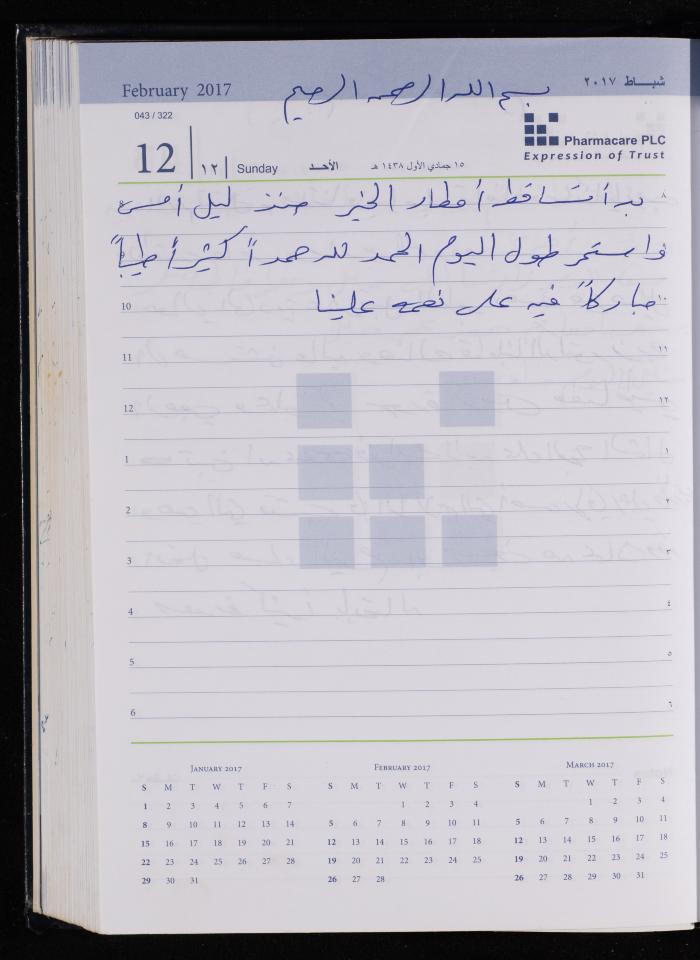 February 2017
بسم الله الرحمن الرحيم
شباط ٢٠١٧
043 / 322
12
١٢
Sunday
الأحد
١٥ جمادي الأول ١٤٣٨ هـ
Pharmacare PLC
Expression of Trust
٨ بدأ تساقط أمطار الخير منذ ليل أمس
واستمر طول اليوم الحمد لله حمداً كثيراً طيباً
10 مباركاً فيه على نعمه علينا ١٠
11 ١١
12 ١٢
1 ١
2 ٢
3 ٣
4 ٤
5 ٥
6 ٦
January 2017
S M T W T F S
1 2 3 4 5 6 7
8 9 10 11 12 13 14
15 16 17 18 19 20 21
22 23 24 25 26 27 28
29 30 31
February 2017
S M T W T F S
1 2 3 4
5 6 7 8 9 10 11
12 13 14 15 16 17 18
19 20 21 22 23 24 25
26 27 28
March 2017
S M T W T F S
1 2 3 4
5 6 7 8 9 10 11
12 13 14 15 16 17 18
19 20 21 22 23 24 25
26 27 28 29 30 31